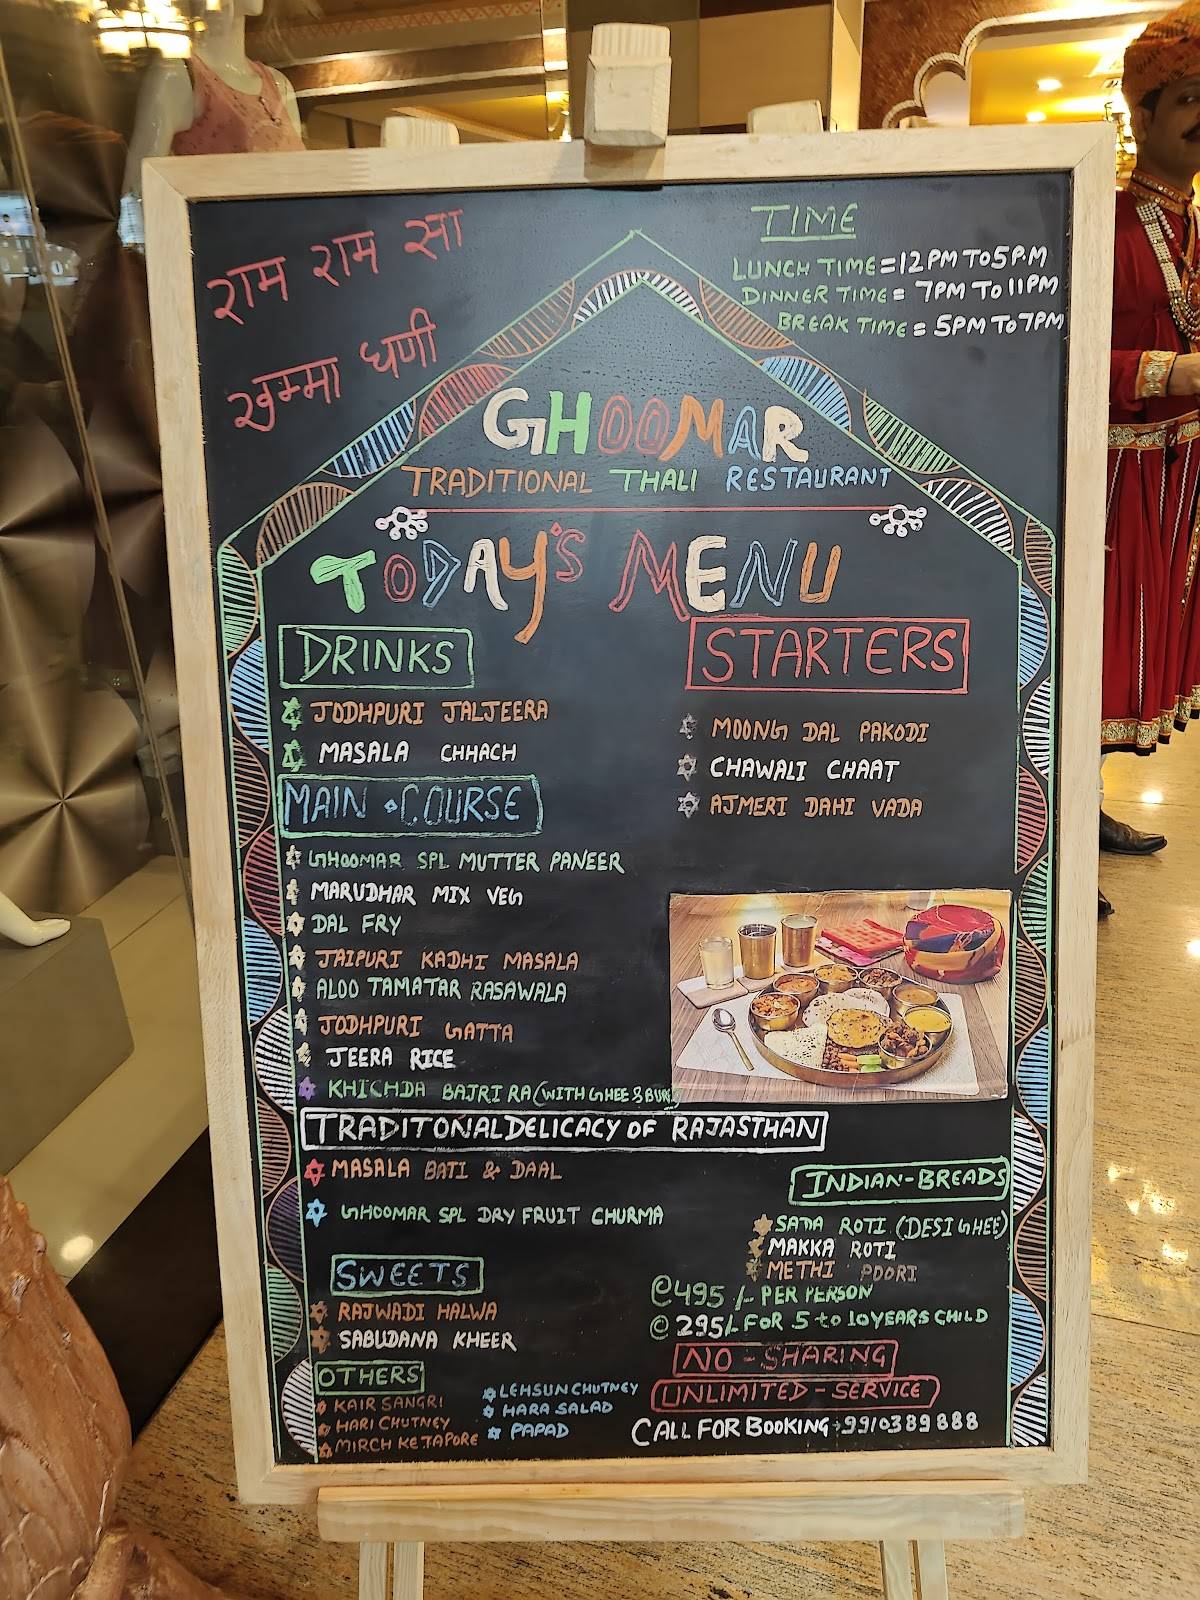 राम राम सा
खम्मा घणी
TIME
LUNCH TIME = 12 PM TO 5 P.M
DINNER TIME = 7PM TO 11PM
BREAK TIME = 5PM TO 7PM
GHOOMAR
TRADITIONAL THALI RESTAURANT
TODAY'S MENU
DRINKS
JODHPURI JALJEERA
MASALA CHHACH
STARTERS
MOONG DAL PAKODI
CHAWALI CHAAT
AJMERI DAHI VADA
MAIN COURSE
GHOOMAR SPL MUTTER PANEER
MARUDHAR MIX VEG
DAL FRY
JAIPURI KADHI MASALA
ALOO TAMATAR RASAWALA
JODHPURI GATTA
JEERA RICE
KHICHDA BAJRI RA (WITH GHEE &
TRADITONAL DELICACY OF RAJASTHAN
MASALA BATI & DAAL
GHOOMAR SPL DRY FRUIT CHURMA
INDIAN-BREADS
SADA ROTI (DESI GHEE)
MAKKA ROTI
METHI POORI
SWEETS
RAJWADI HALWA
SABUDANA KHEER
@495/- PER PERSON
@ 295/- FOR 5 to 10 YEARS CHILD
NO-SHARING
UNLIMITED-SERVICE
CALL FOR BOOKING
OTHERS
KAIR SANGRI
HARI CHUTNEY
MIRCH KE TAPORE
LEHSUN CHUTNEY
HARA SALAD
PAPAD